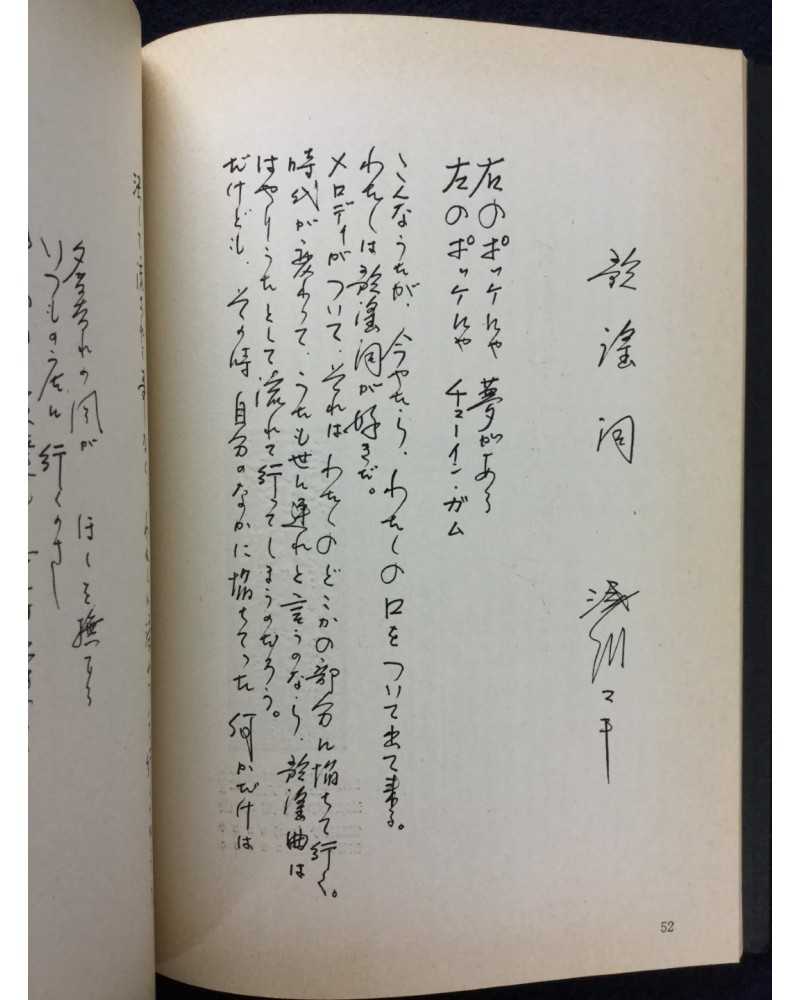 歌謡詞
浅川マキ
右のポッケにや 夢がある
左のポッケにや チューイン・ガム
こんなうたが、今やたら、わたしの口をついて出て来る。
わたしは歌謡詞が好きだ。
メロディがついて、それは わたしのどこかの部分に陥ちて行く。
時代が変わって、うたもせに連れと言うのなら、歌謡曲は
はやりうたとして流れて行ってしまうのだろう。
だけども、その時 自分のなかに陥ちてった 何かだけは
52
夕暮れの風が ほほを撫でる
いつもの店に行くのさ